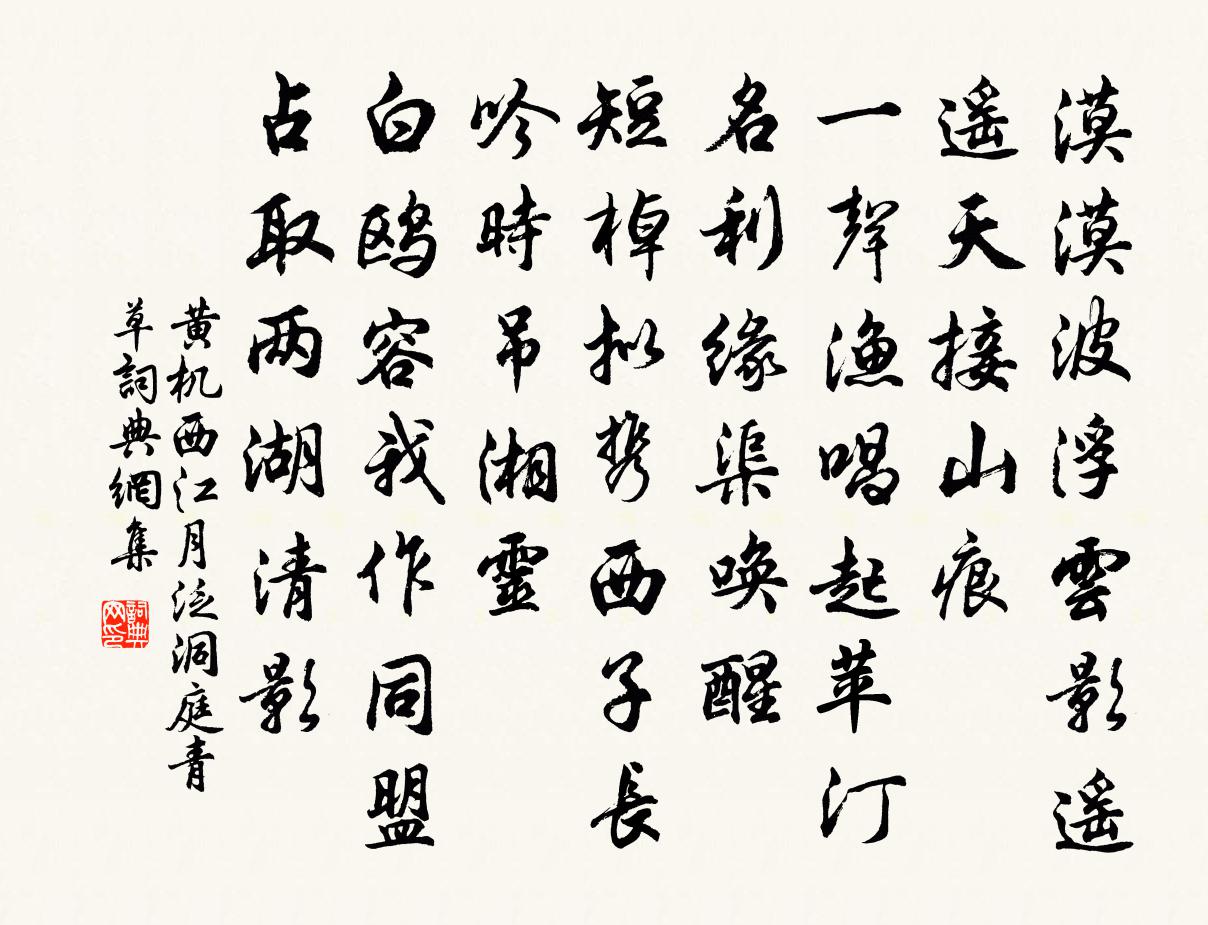 漠漠波浮雲影遥
遥天接山痕
一聲漁唱起苹汀
名利緣渠喚醒
短棹拟携西子長
吟時吊湘靈
白鸥容我作同盟
占取两湖清影
黄机西江月泛洞庭青
草詞典網集
詞典
网印